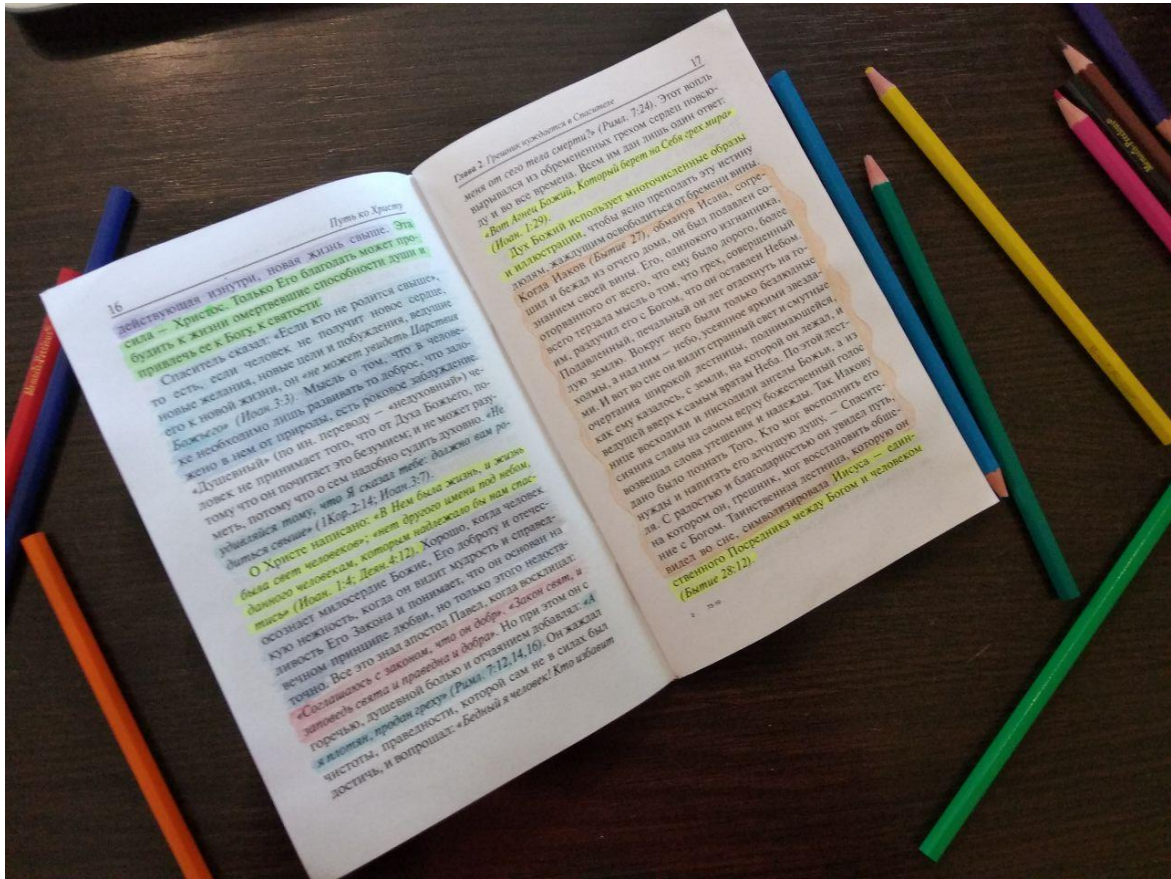 16
Путь ко Христу
действующая изнутри, новая жизнь свыше. Эта
сила – Христос. Только Его благодать может про-
будить к жизни омертвевшие способности души и
привлечь ее к Богу, к святости.
Спаситель сказал: «Если кто не родится свыше»,
то есть, если человек не получит новое сердце,
новые желания, новые цели и побуждения, ведущие
его к новой жизни, он «не может увидеть Царствия
Божьего» (Иоан. 3:3). Мысль о том, что в челове-
ке необходимо лишь развивать то доброе, что зало-
жено в нем от природы, есть роковое заблуждение.
«Душевный» (по ин. переводу – «недуховный») че-
ловек не принимает того, что от Духа Божьего, по-
тому что он почитает это безумием; и не может разу-
меть, потому что о сем надобно судить духовно. «Не
удивляйся тому, что Я сказал тебе: должно вам ро-
диться свыше» (1Кор.2:14; Иоан.3:7).
О Христе написано: «В Нем была жизнь, и жизнь
была свет человеков»; «нет другого имени под небом,
данного человекам, которым надлежало бы нам спас-
тись» (Иоан. 1:4; Деян. 4:12). Хорошо, когда человек
осознает милосердие Божие, Его доброту и отечес-
кую нежность, когда он видит мудрость и справед-
ливость Его Закона и понимает, что он основан на
вечном принципе любви, но только этого недоста-
точно. Все это знал апостол Павел, когда восклицал:
«Соглашаюсь с законом, что он добр». «Закон свят, и
заповедь свята и праведна и добра». Но при этом он с
горечью, душевной болью и отчаянием добавлял: «А
я плотян, продан греху» (Римл. 7:12,14,16). Он жаждал
чистоты, праведности, которой сам не в силах был
достичь, и вопрошал: «Бедный я человек! Кто избавит
17
Глава 2. Грешник нуждается в Спасителе
меня от сего тела смерти?» (Римл. 7:24). Этот вопль
вырывался из обремененных грехом сердец повсю-
ду и во все времена. Всем им дан лишь один ответ:
«Вот Агнец Божий, Который берет на Себя грех мира»
(Иоан. 1:29).
Дух Божий использует многочисленные образы
и иллюстрации, чтобы ясно преподать эту истину
людям, жаждущим освободиться от бремени вины.
Когда Иаков (Бытие 27), обманув Исава, согре-
шил и бежал из отчего дома, он был подавлен со-
знанием своей вины. Его, одинокого изгнанника,
оторванного от всего, что ему было дорого, более
всего терзала мысль о том, что грех, совершенный
им, разлучил его с Богом, что он оставлен Небом.
Подавленный, печальный он лег отдохнуть на го-
лую землю. Вокруг него были только безлюдные
холмы, а над ним – небо, усеянное яркими звезда-
ми. И вот во сне он видит странный свет и смутные
очертания широкой лестницы, поднимающейся,
как ему казалось, с земли, на которой он лежал, и
ведущей вверх к самым вратам Неба. По этой лест-
нице восходили и нисходили ангелы Божьи, а из
сияния славы на самом верху божественный голос
возвещал слова утешения и надежды. Так Иакову
дано было познать Того, Кто мог восполнить его
нужды и напитать его алчущую душу, – Спасите-
ля. С радостью и благодарностью он увидел путь,
на котором он, грешник, мог восстановить обще-
ние с Богом. Таинственная лестница, которую он
видел во сне, символизировала Иисуса – един-
ственного Посредника между Богом и человеком
(Бытие 28:12).